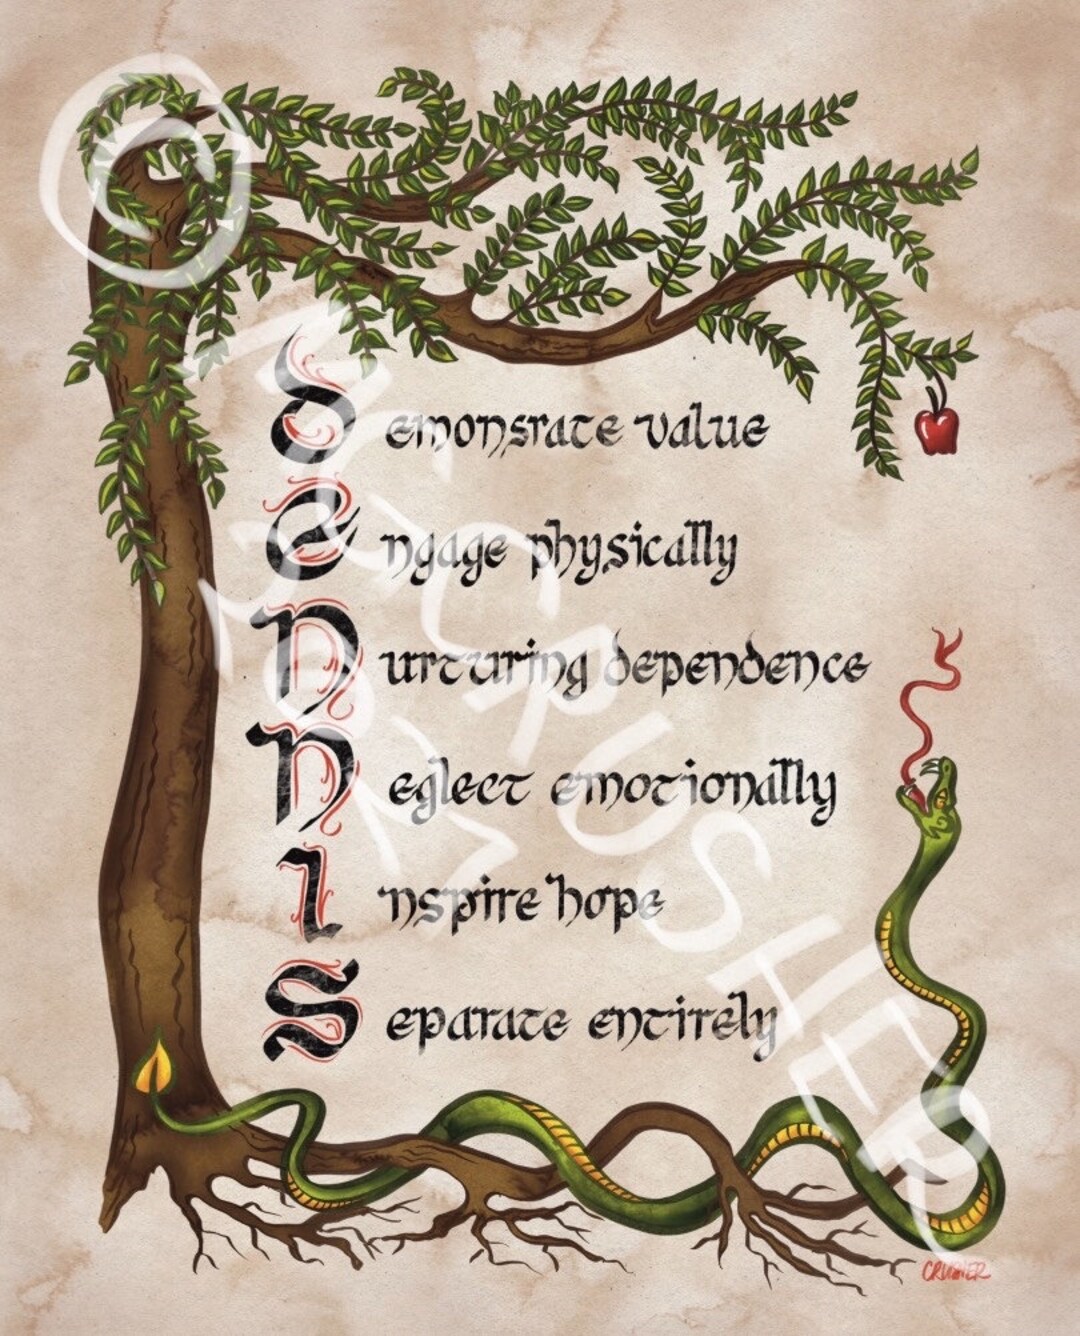 Demonsrate value
Engage physically
Nurturing dependence
Neglect emotionally
Inspire hope
Separate entirely
©
CRUSHER